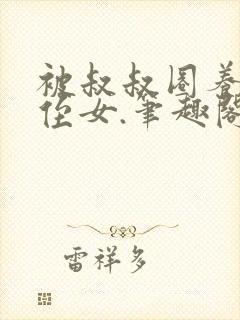 被叔叔圈养
侄女.笔趣阁
雷祥多